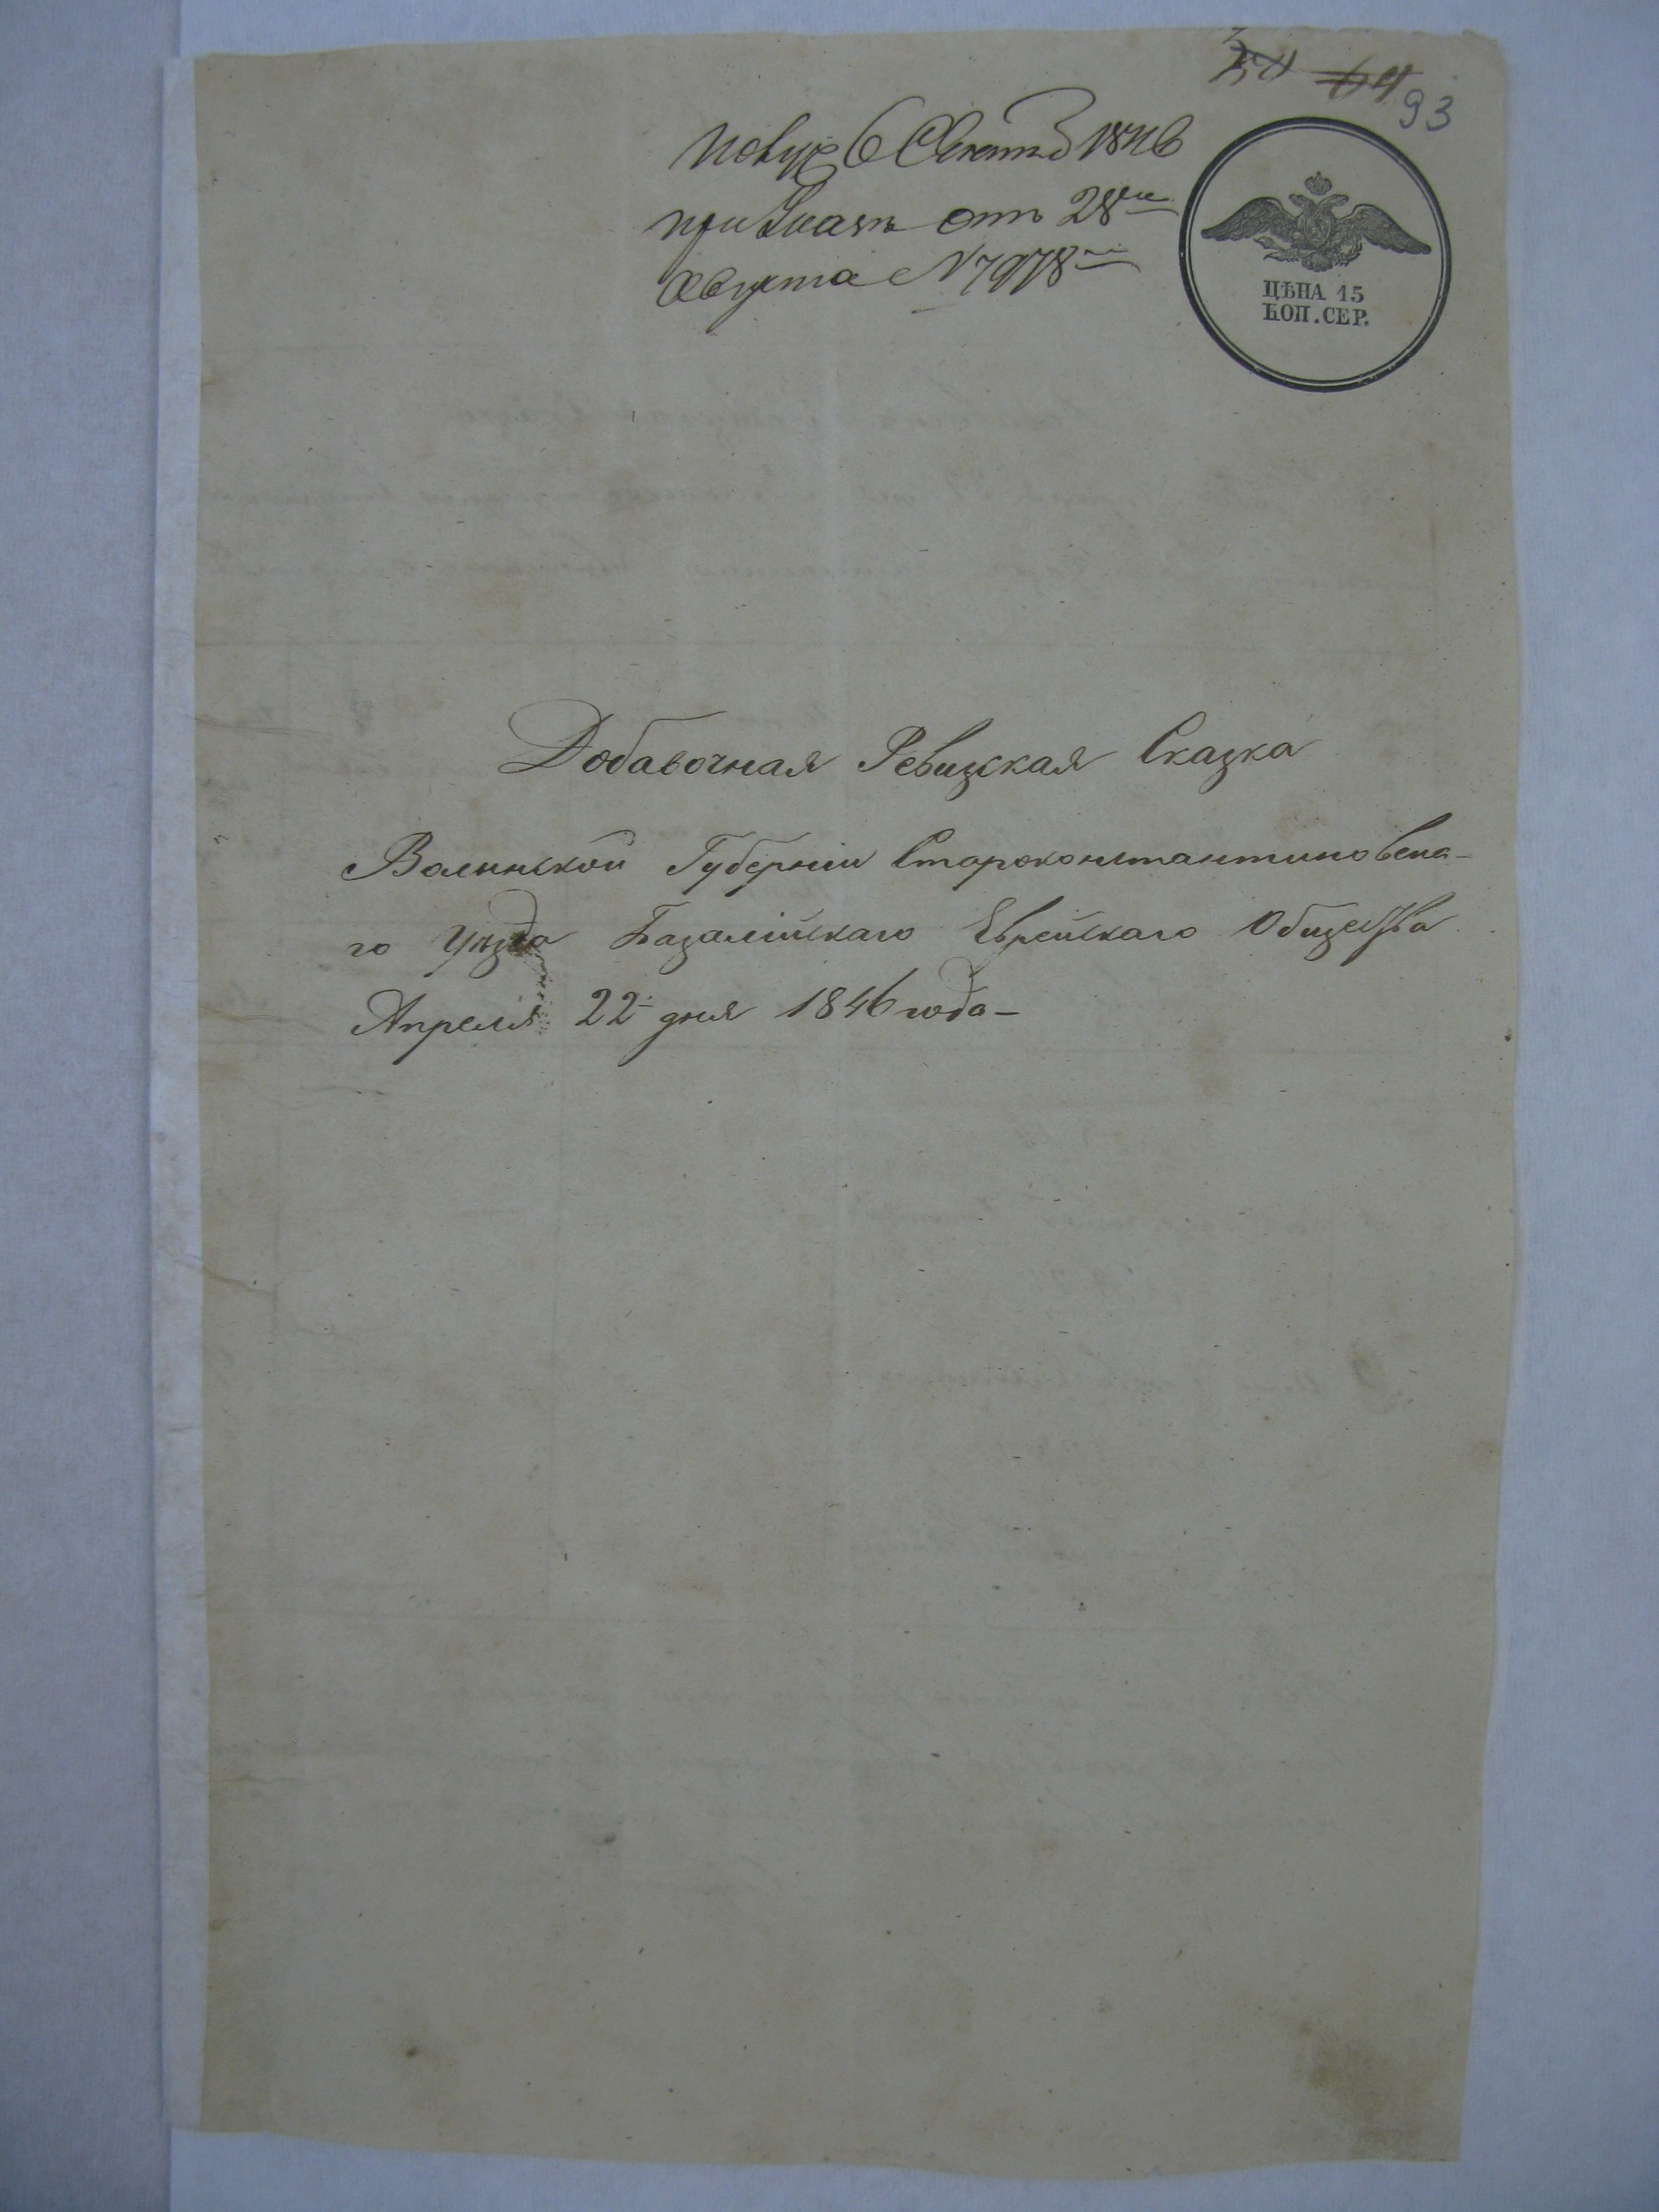 93
Получ 6 Сентяб 1846
при Указѣ отъ 28го
Августа №7978
ЦѢНА 15
КОП. СЕР.
Добавочная Ревизская Сказка
Волынской Губерніи Староконстантиновска-
го Уѣзда Базалійскаго Еврейскаго Общества
Апреля 22 дня 1846 года